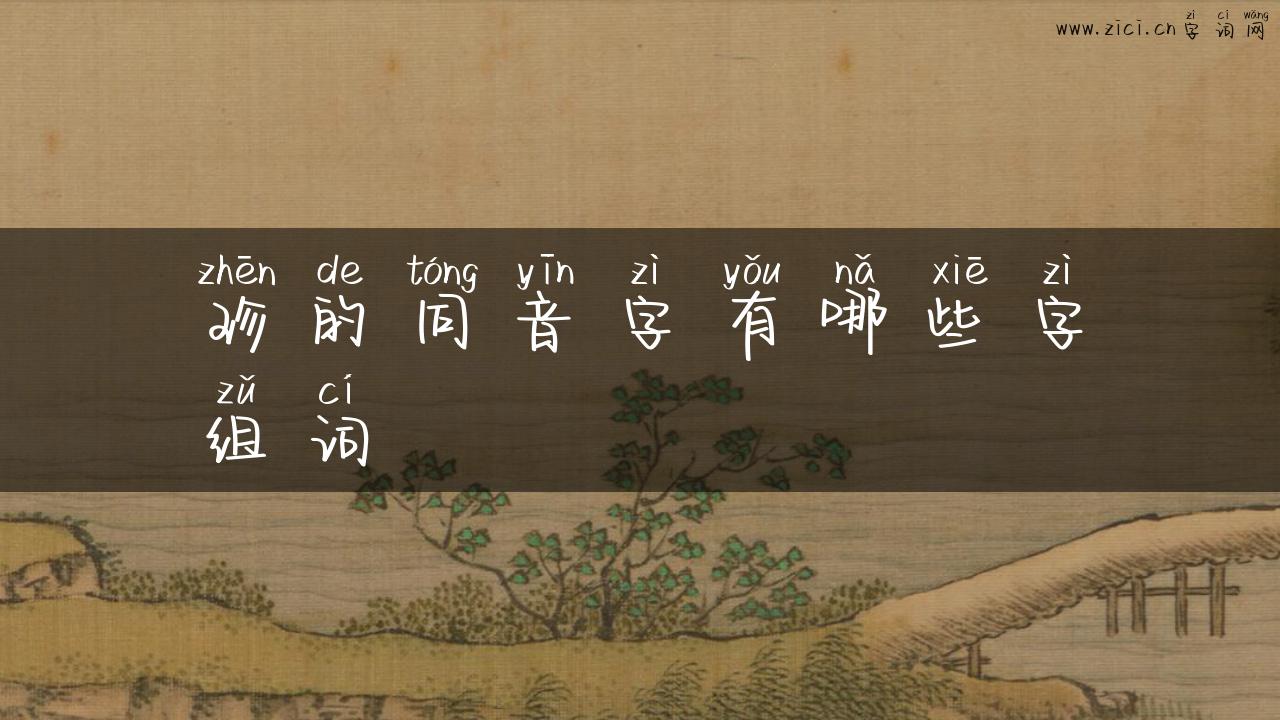 zì cí wǎng
www.zici.cn字词网
zhēn de tóng yīn zì yǒu nǎ xiē zì
珍的同音字有哪些字
zǔ cí
组词